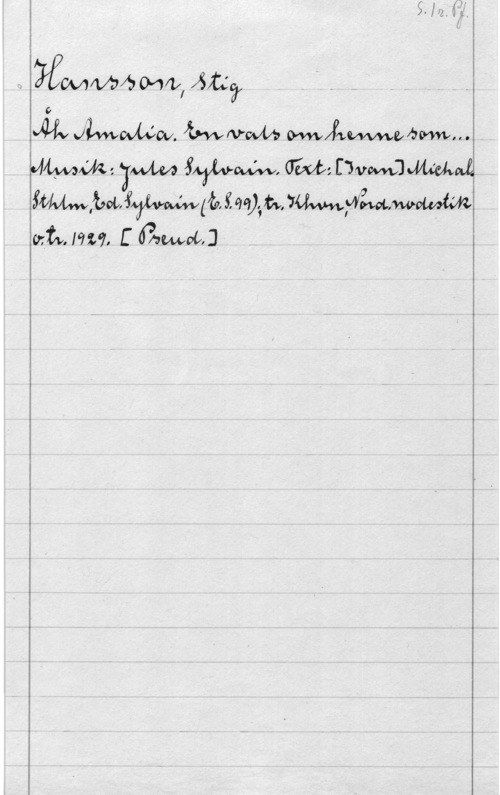 S. 1 r. Pf.
Hansson, Stig
Åh Amalia. En vals om henne som...
Musik: Jules Sylvain. Text: [Ivan] Michal.
Sthlm, Ed. Sylvain (E.S.99); tr. Khvn, Nord. nodestik
o. tr. 1929. [Pseud.]